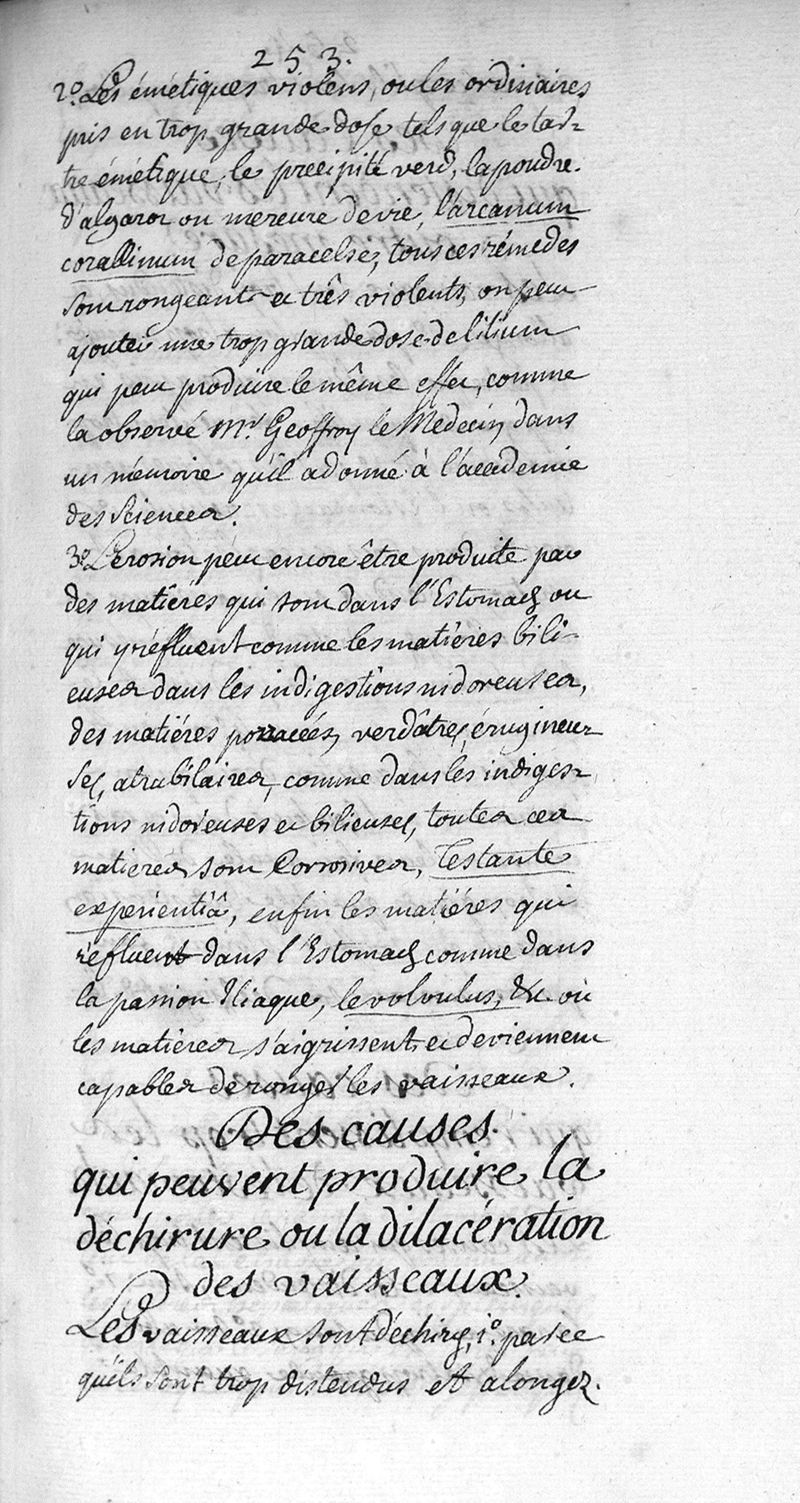 253.
2º. Les émétiques violens, ou les ordinaires
pris en trop grande dose tels que le tar-
tre émétique, le précipité verd, la poudre
d'algaror ou mercure de vie, l'arcanum
corallinum de paracelse, tous ces rémedes
sont rongeants et très violents, on peut
ajouter une trop grande dose de lilium
qui peut produire le même effet, comme
la observé Mr. Geoffroy le Medecin dans
un mémoire qu'il a donné à l'academie
des sciences.
3º L'erosion peut encore être produite par
des matiéres qui sont dans l'Estomach ou
qui y réfluent comme les matiéres bili-
euses dans les indigestions nidoreuses,
des matiéres porracées, verdâtres, érugineu-
ses, atrabilaires, comme dans les indiges-
tions nidoreuses et bilieuses, toutes ces
matieres sont Corrosives, Testante
experientiâ, enfin les matiéres qui
réfluent dans l'Estomach comme dans
la passion Iliaque, le volvulus, &c. où
les matiéres s'aigrissent et deviennent
capables de ronger les vaisseaux.
Des causes
qui peuvent produire la
déchirure ou la dilacération
des vaisseaux.
Les vaisseaux sont déchirés, 1º. parce
qu'ils sont trop distendus et alongez.